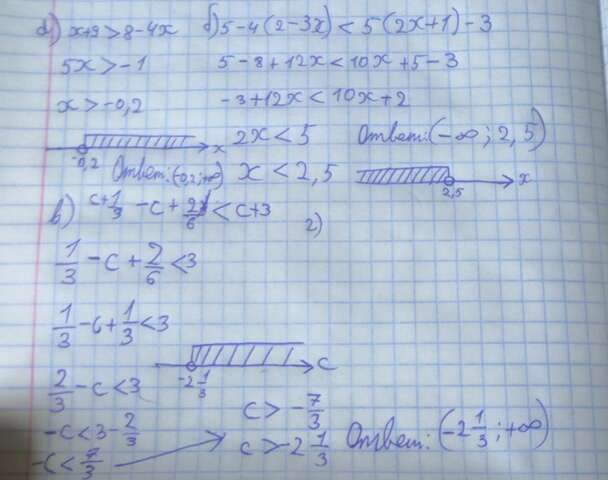 а) x+9>8-4x
5x>-1
x>-0,2
-0,2 x
Ответ: (-0,2;+∞)
б) 5-4(2-3x)<5(2x+1)-3
5-8+12x<10x+5-3
-3+12x<10x+2
2x<5
x<2,5
Ответ: (-∞; 2,5)
2,5 x
в) c+1/3 -c+2/6<c+3
1/3-c+2/6<3
1/3-c+1/3<3
2/3-c<3
-c<3-2/3
-c<7/3
c>-7/3
c>-2 1/3
-2 1/3 c
Ответ: (-2 1/3; +∞)
г)